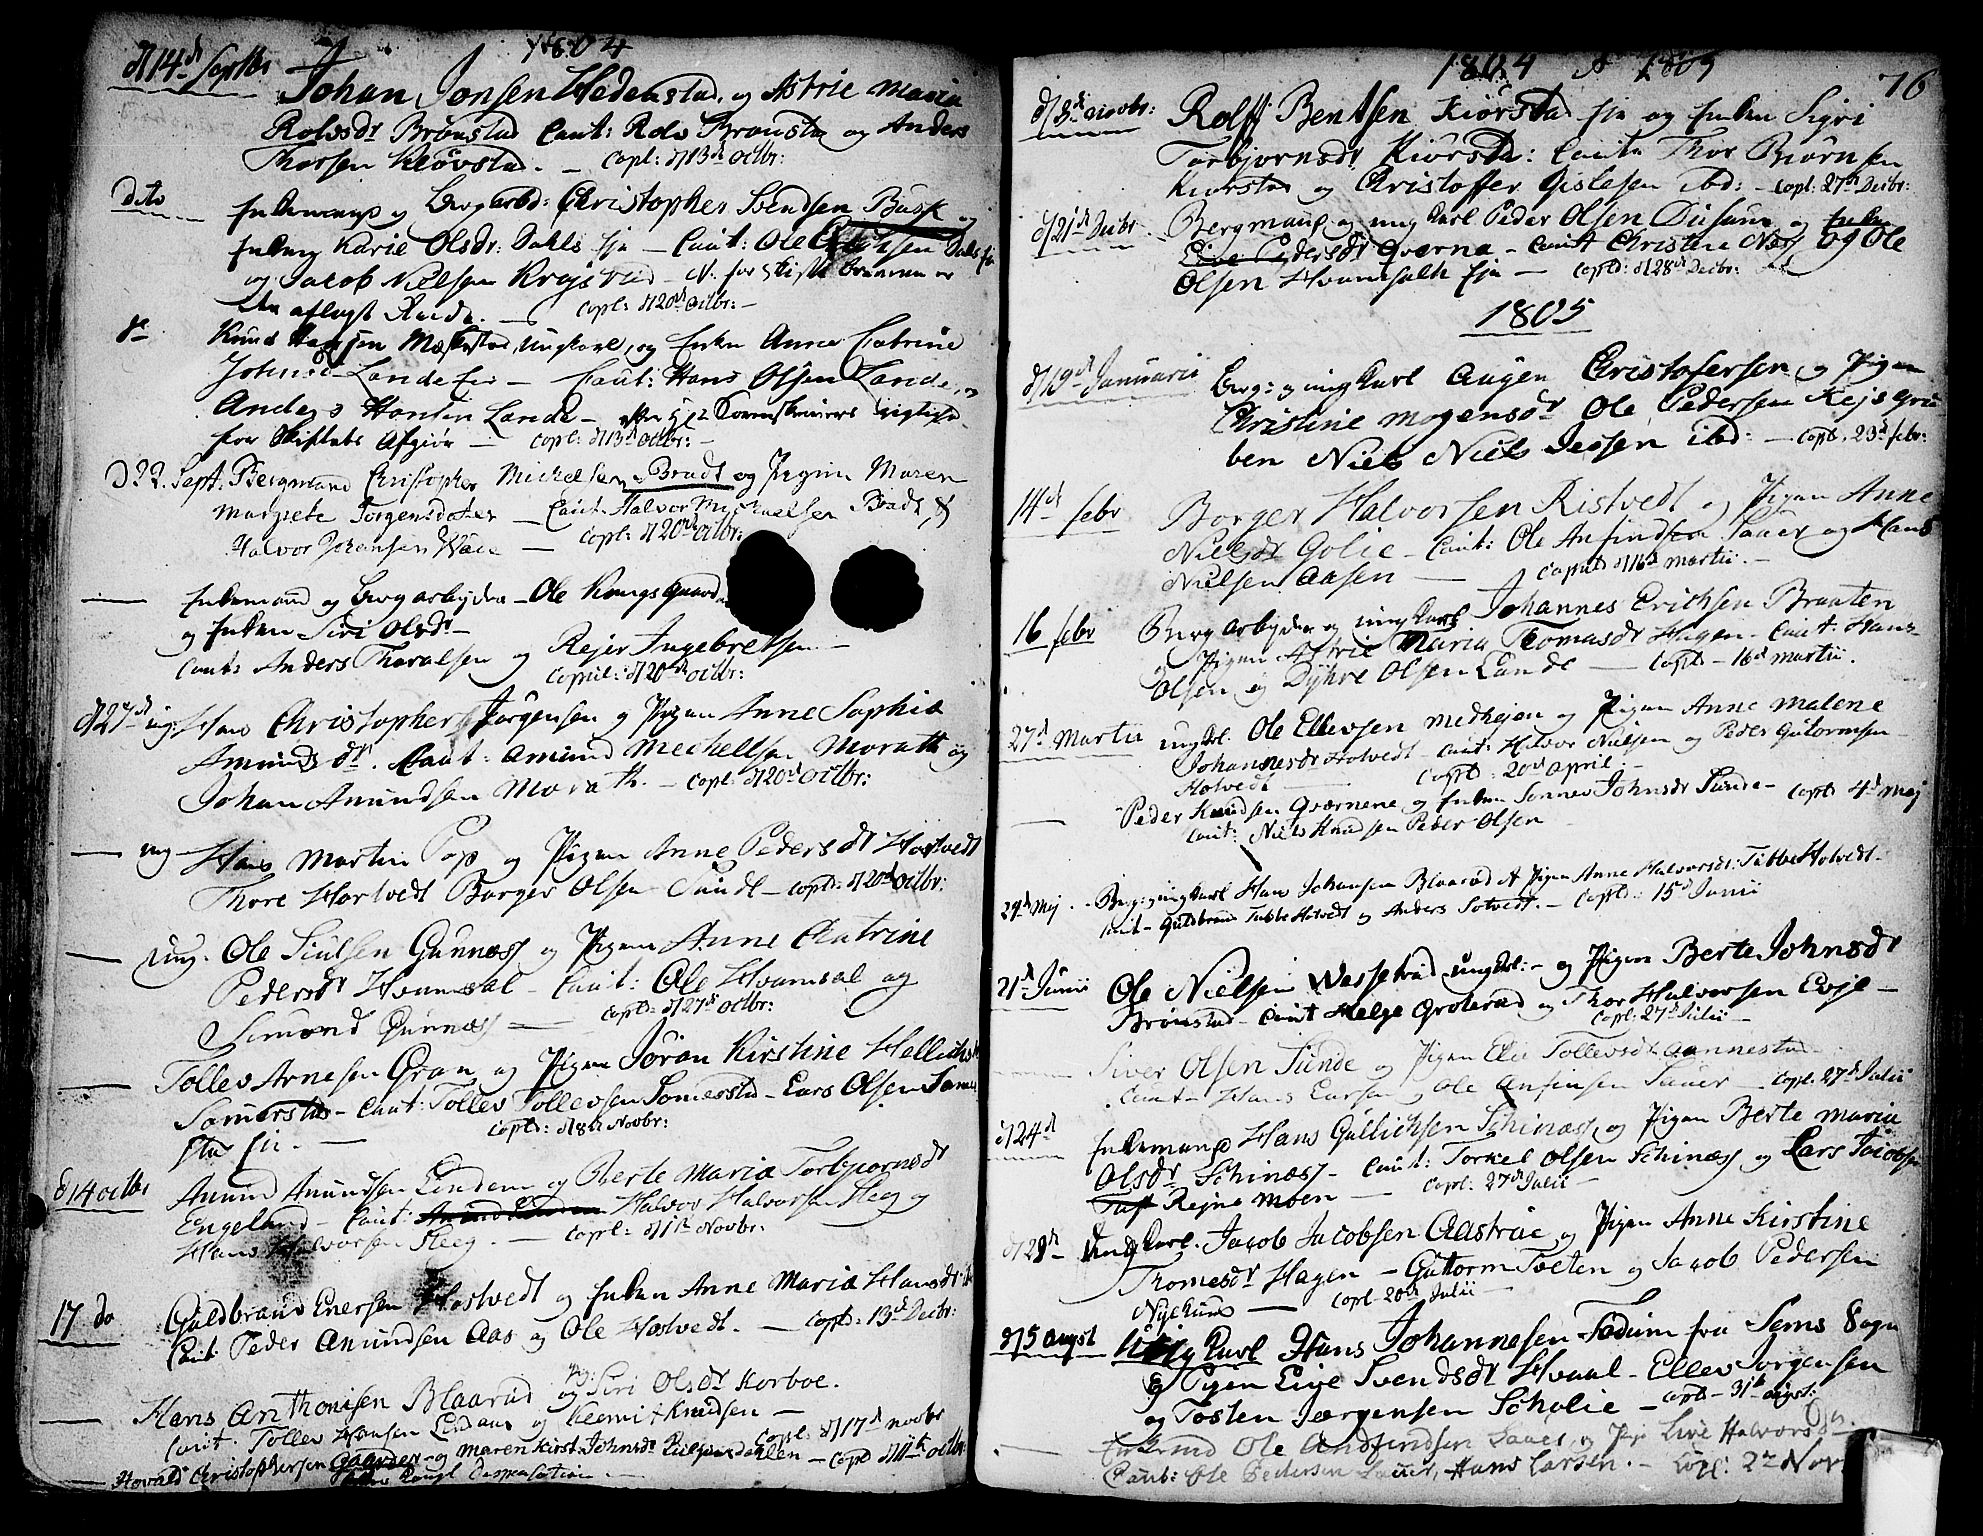 1804
d/14d Septbr Johan Jonsen Hedenstad og Astrie Maria
Rolvsdr Brønstad Caut: Rolv Brønsta og Anders
Thorsen Kløvstad. — Copl: d/13d Octbr:
dito Enkemand og Bergarbd: Christopher Svendsen Busk og
Enken Karie Olsdr: Dahls Eje — Caut: Ole Erichsen Dals Eje
og Jacob Nielsen — for Skiftebrevene er
den aflagt — Copl: d/20de Octbr: —
do Knud Hansen ungkarl, og Enken Anne Catrine
Johnsdr Lande Eie — Caut: Hans Olsen Lande, og
Anders Hansen Lande —
for Skiftets Afgiør — Copl: d/13d Octbr: —
D 22. Sept. Bergmand Christopher Michelsen Bradt og Pigen Maren
Margrete Jørgensdater — Caut. Halvor Michaelsen Bradt &
Halvor Johansen — Copl: d/20de Octbr:
Enkemand og Bergarbejder — Ole Kongsgaard
og Enken Siri Olsdr —
Caut: Anders Tharalsen og Rejer Ingebretsen —
Copul: d/20de Octbr:
d/27de ug: Hans Christopher Jørgensen og Pigen Anne Sophia
Amundsdr. Caut: Amund Mechelsen Morath og
Johan Amundsen Morath. — Copl: d/20d Octbr:
— ung Hans Martin Pop og Pigen Anne Pedersdr Hostvedt
Thore Hostvedt Borger Olsen Sunde — Copl: d/20d Octbr:
— ung. Ole Siulsen Gunnæss og Pigen Anne Catrine
Pedersdr Hvamsal — Caut: Ole Hvamsal og
Simond Gunnæss — Copl: d/27de Octbr:
— Tollev Arnesen Gran og Pigen Jøran Kirstine Hellichsdr
Somerstad — Caut: Tollev Tollevsen Somerstad — Lars Olsen Somer
stad Eie. — Copl: d/8de Novbr:
d/14 Octbr Anund Anundsen Lindem og Berte Maria Torbjørnsdr
Engeland — Caut: Halvor Halvorsen Heeg og
Hans Halvorsen Heeg. — Copl: d/1de Novbr:
17 do Guldbrand Enersen Hostvedt og Enken Anne Maria Hansdr ib
Caut Peder Anundsen Aas og Ole Hostvedt. — Copl: 13d Decbr:
— Hans Anthonisen Blaarud og Pig: Siri Olsdr Korboe.
Caut. Tollev Hansen og Knudsen — Copl: d/17d Novbr
— Christophersen Gaarder og Maren Kirst: Johnsdr — Copl d/11te Octbr:
Dispensation —
1804 & 1805
76
d/8d Novbr: Rolff Bentsen Kiørstad Eje og Enken Sigri
Torbjørnsdr Kiørsta: Caut: Thor Biørnsen
Kiørstad og Christoffer Gislesen ibd: — Copl: 27de Decbr:
d/21d Decbr. Bergmand og ungkarl Peder Olsen og Enken
Live Pedersdr Qverne — Caut Christen Næss og Ole
Olsen Hvamsalh Eje — Copld: d/28de Decbr:
1805
d/19d Januarii Berg: og ungkarl Augen Christofersen og Pigen
Christine Mogensdr Ole Pedersen Rejsgru
ben Niels Niels Jessen ibd: — Copl. 23d febr:
14de febr Borger Halvorsen Ristvedt og Pigen Anne
Nielsdr Golie — Caut: Ole Anfindsen Sauer og Hans
Nielsen Aasen — Copuld d/16d Martii. —
16 febr Bergarbejder og ungkarl Johannes Erichsen Braaten
og Pigen Astrie Maria Thomasdr Hagen — Caut: Hans
Olsen og Dyhre Olsen Lande — Copld — 16d Martii.
27d Martii ungkl. Ole Ellevsen Medhejen og Pigen Anne Malene
Johannesdr Hotvedt — Caut: Halvor Nielsen og Peder Gutormsen
Hotvedt — Copld: 20d April. —
— Peder Knudsen Qvernene og Enken Sonnev Johnsdr Sunde — Copld 4d Mej
Caut: Niels Knudsen Peder Olsen —
29de Mej. Berg: ungkarl Hans Johansen Blaarud & Pigen Anne Halvorsdr: Tubbe Hotvedt —
Caut — Guldbrand Tubbe Hotvedt og Anders Sotvedt. — Copld: 15d Junii
21d Junii Ole Nielsen Wessetrud ungkl: — og Pigen Berte Johnsdr
Brønstad — Caut Helge Groterud og Thor Halvorsen Evje —
Copl: 27de Julii —
— Siver Olsen Sunde og Pigen Elie Tollevsdr Aannestad
Caut — Hans Larsen og Ole Anfinsen Sauer — Copl. 27d Julii
d/24d Enkemand Hans Gullichsen Schinæss og Pigen Berte Maria
Olsdr Schinæss — Caut: Torkel Olsen Schinæss og Lars Jacobsen
Rejne Moen — Copl: 27de Julii —
d/29de Ungkarl. Jacob Jacobsen Aastrue og Pigen Anne Kirstine
Thomesdr Hagen — Guttorm Tveten og Jacob Pedersen
Nyehuus — Copl — 20de Julii —
d/5 Augst Ungkarl Hans Johannesen Fadum fra Sems Sogn
og Pigen Live Svendsdr Hvaal — Ellev Jørgensen
og Tosten Jørgensen Scholie — Copld — 31te Augst:
— Enkemd Ole Andfindsen Sauer og Pige Live Halvorsdr
Caut: Ole Pedersen Sauer, Hans Larsen. — Copl: 2de Nov